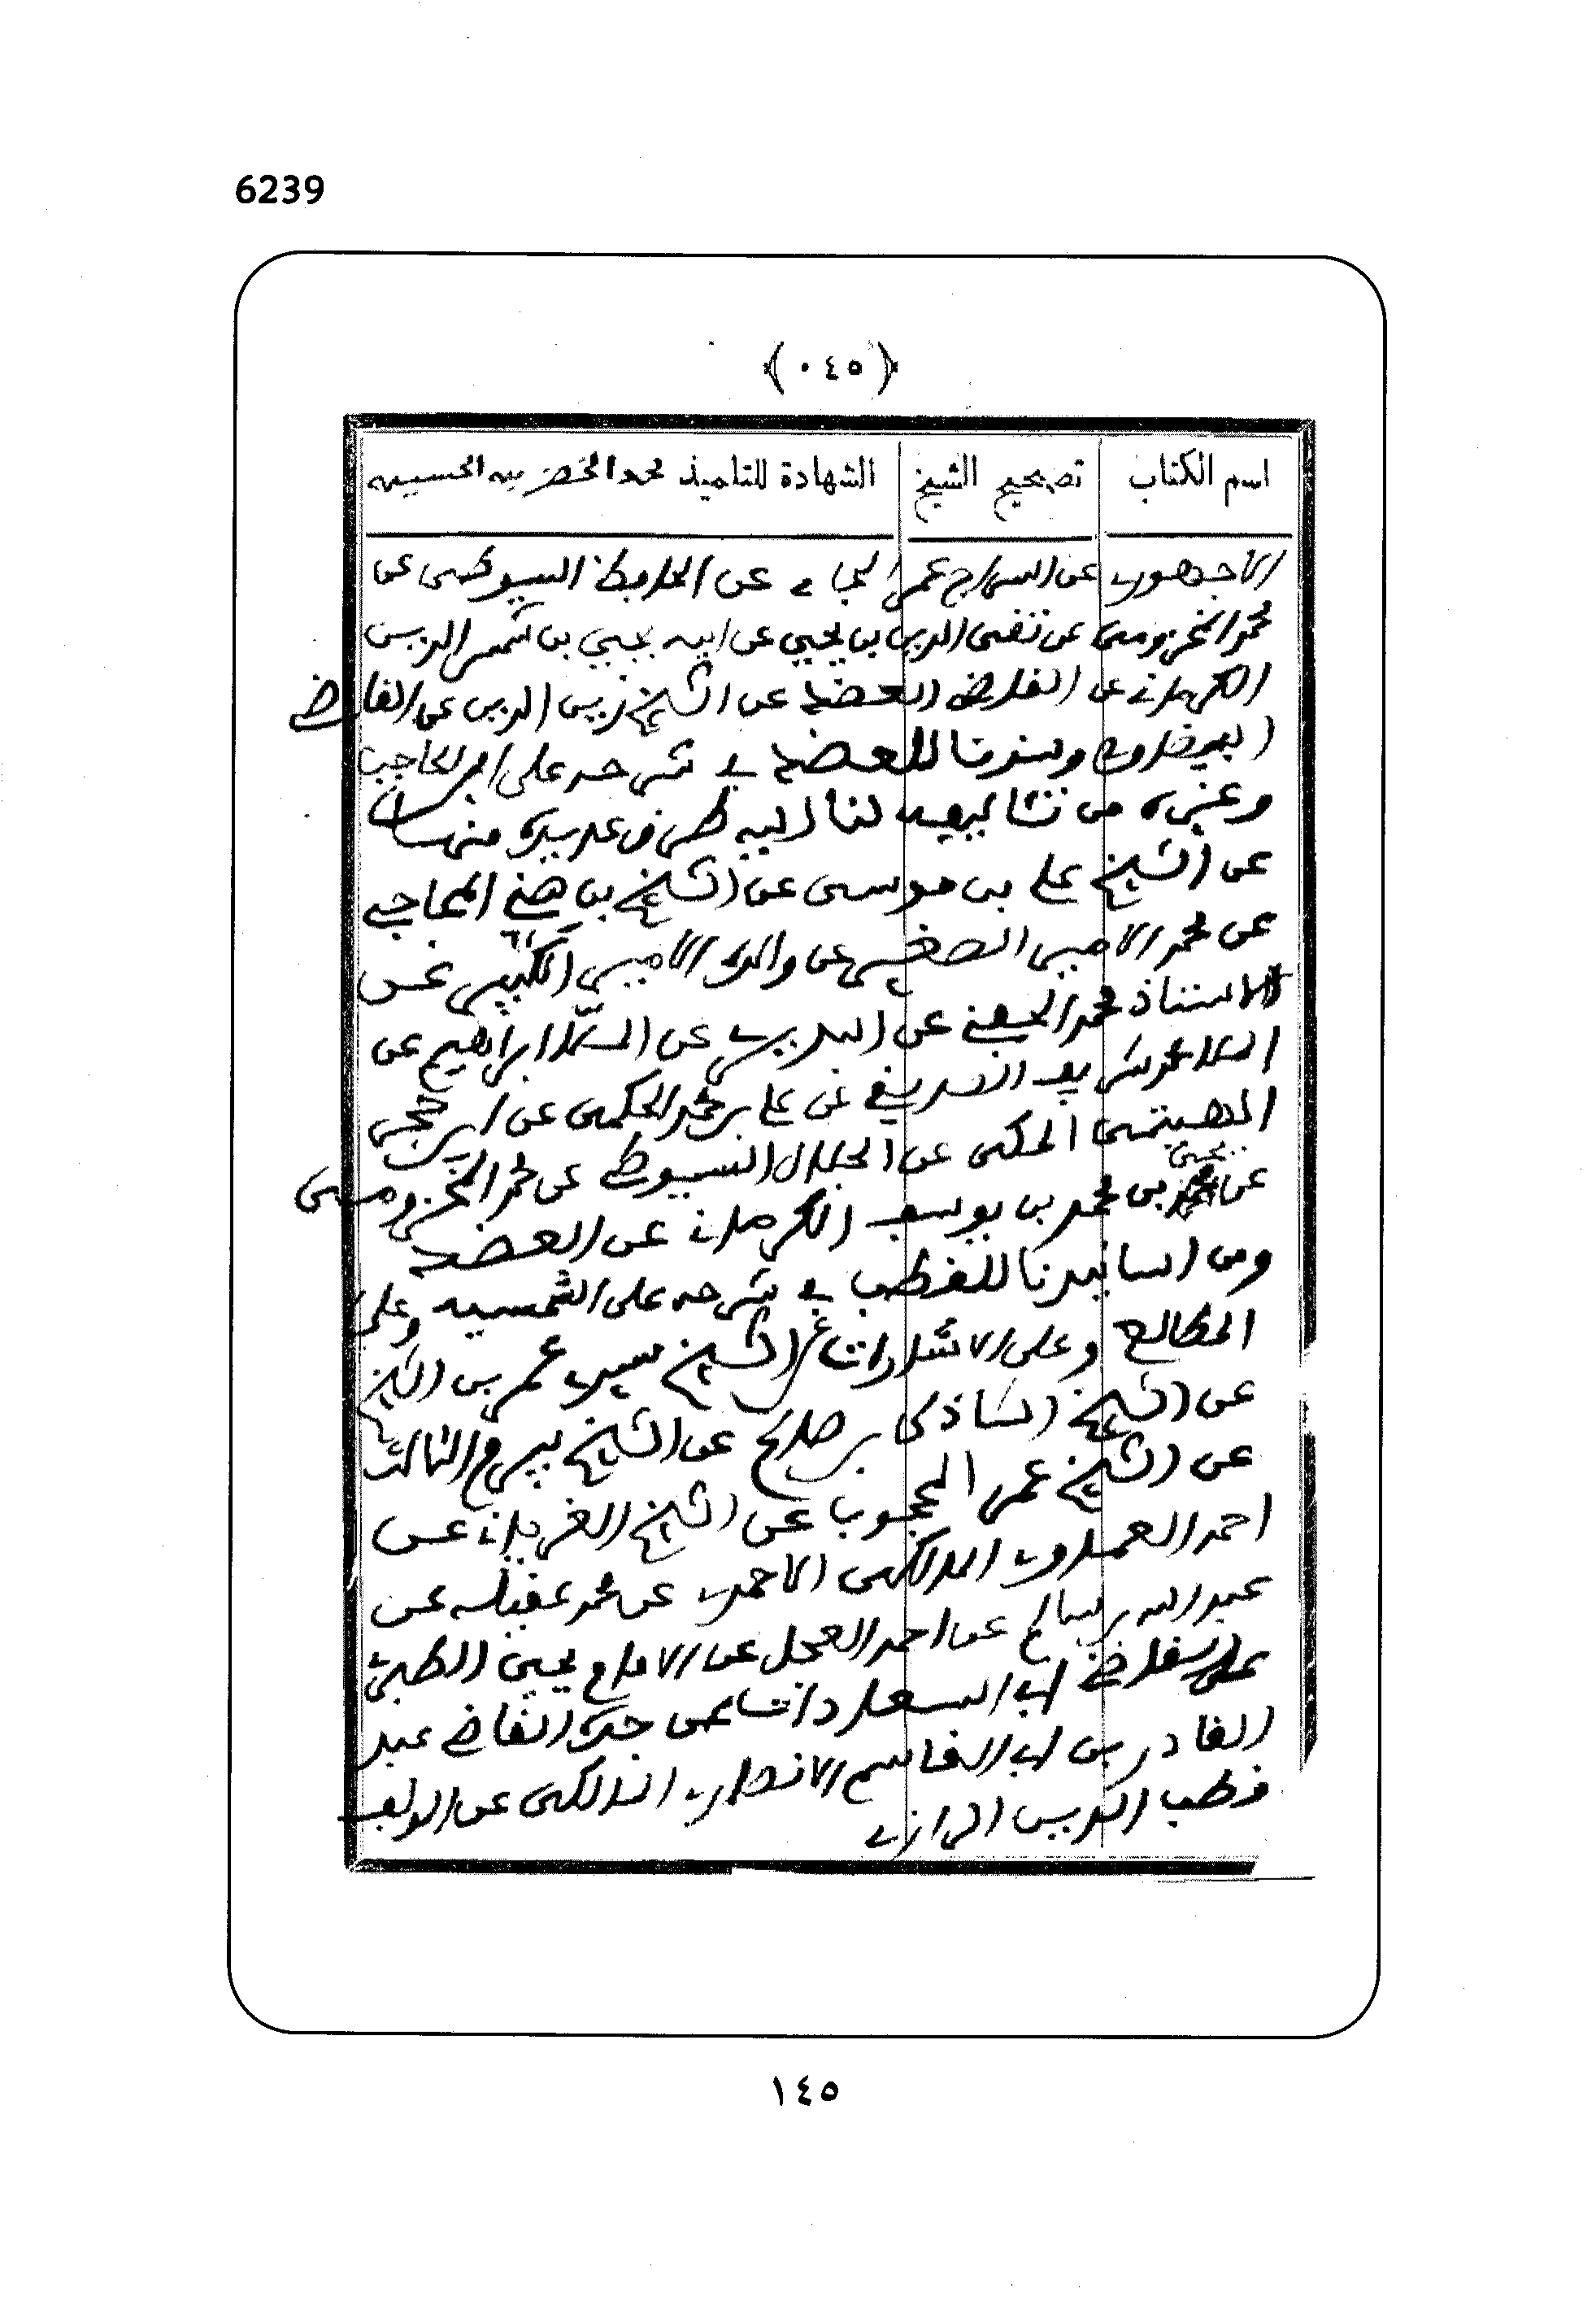 6239
﴿٠٤٥﴾
اسم الكتاب تصحيح الشيخ الشهادة للتلميذ محمد الخضر بن الحسين
الاجهوري عن السراج عمر الجاي عن الحافظ السيوطي عن
محمد المخزومي عن تقي الدين بن يحيى عن ابيه يحيى بن شمس الدين
الكرماني عن القاضي العضد عن الشيخ زين الدين عن القاضي
البيضاوي وسندنا للعضد في شرحه على ابن الحاجب
وغيره من تئاليفه لنا اليه طرق عديدة منها
عن الشيخ علي بن موسى عن الشيخ بن هني الحجاجي
عن محمد الامير الصغير عن والده الامير الكبير عن
الاستاذ محمد الحفني عن البديري عن الملا ابراهيم عن
الملا محمد شريف الصديقي عن علي بن محمد الحكمي عن ابن حجر
الهيتمي المكي عن الجلال السيوطي عن محمد المخزومي
عن يحيى بن محمد بن يوسف الكرماني عن العضد
ومن اسانيدنا للقطب في شرحه على الشمسية وعلى
المطالع وعلى الاشارات عن الشيخ سيدي عمر بن الشيخ
عن الشيخ الشاذلي بن صالح عن الشيخ بيرم الثالث
عن الشيخ عمر المحجوب عن الشيخ الغرياني عن
احمد العماوي المالكي الاحمدي عن محمد عقيلة عن
عبد الله بن سالم عن احمد العجل عن الامام يحيى الطبري
على القاضي ابي السعادات عن جده القاضي عبد
القادر بن ابي القاسم الانصاري المالكي عن المولف
قطب الدين الرازي
١٤٥